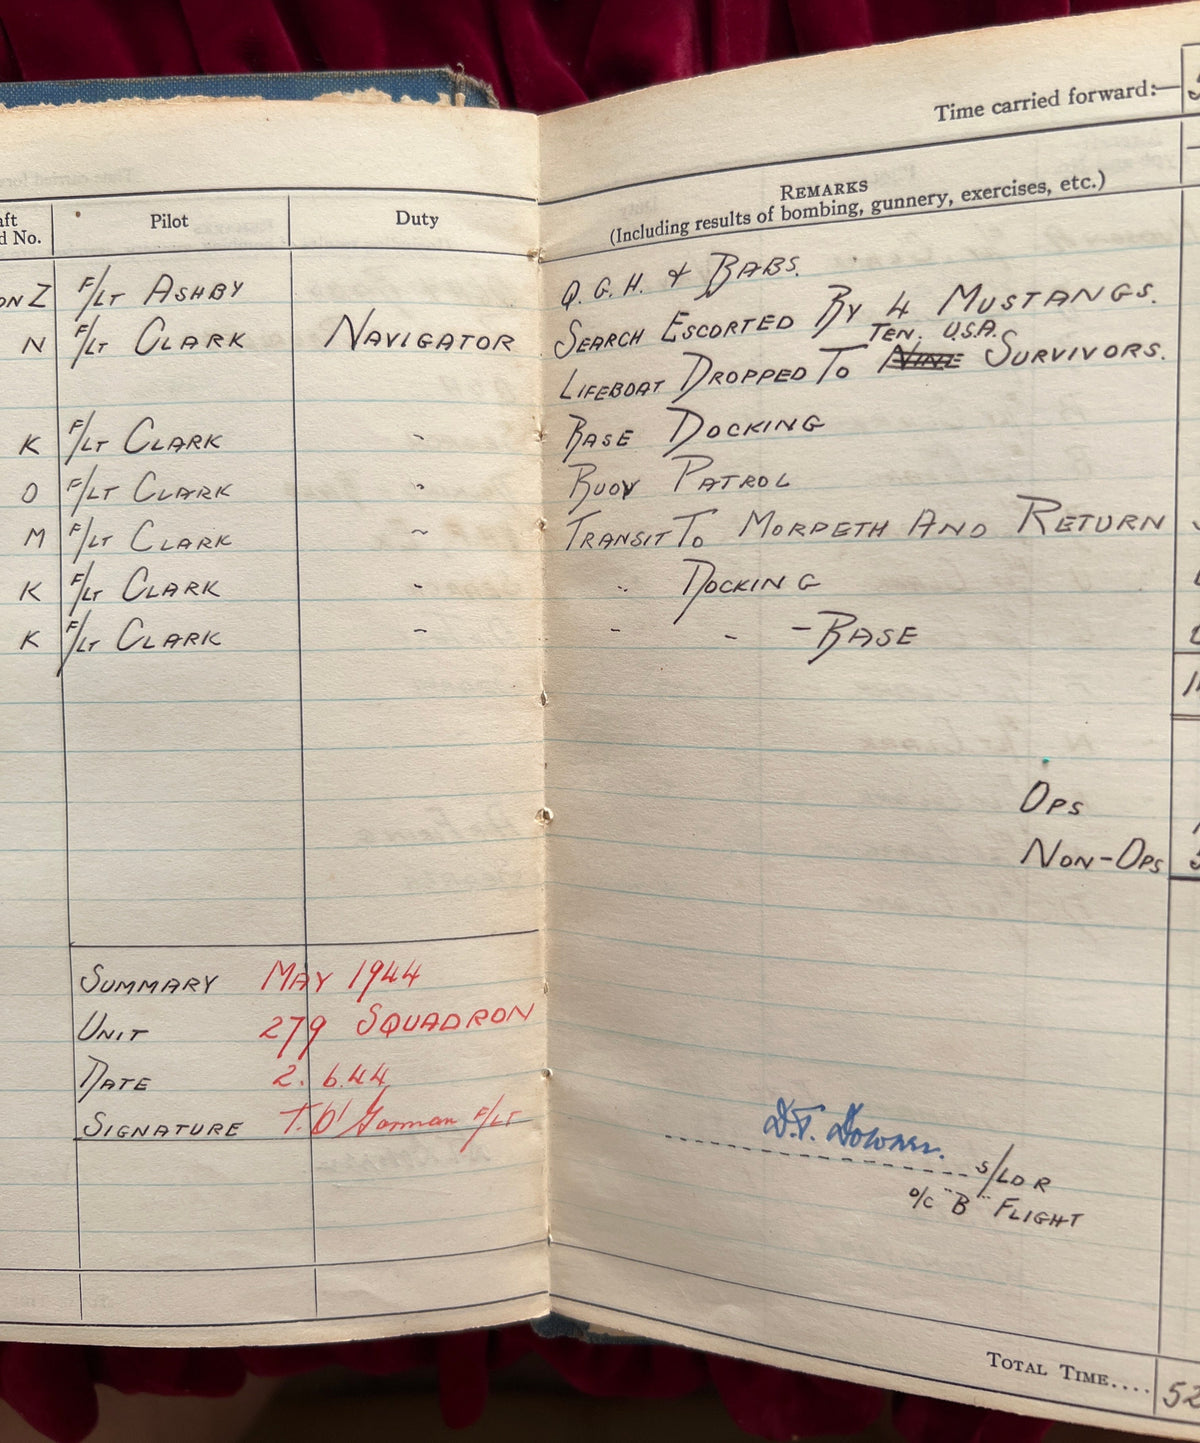 Time carried forward:—
aft
d No.
Pilot
Duty
REMARKS
(Including results of bombing, gunnery, exercises, etc.)
ON Z F/LT ASHBY Q.G.H. & BABS.
N F/LT CLARK NAVIGATOR SEARCH ESCORTED BY 4 MUSTANGS.
TEN. U.S.A.
LIFEBOAT DROPPED TO NINE SURVIVORS.
K F/LT CLARK " BASE DOCKING
O F/LT CLARK " BUOY PATROL
M F/LT CLARK " TRANSIT TO MORPETH AND RETURN
K F/LT CLARK " " DOCKING
K F/LT CLARK " " " – BASE
OPS
NON-OPS
SUMMARY MAY 1944
UNIT 279 SQUADRON
DATE 2.6.44
SIGNATURE T. O'Gorman F/LT
D.F. Downer.
S/LDR
O/C "B" FLIGHT
TOTAL TIME....
52